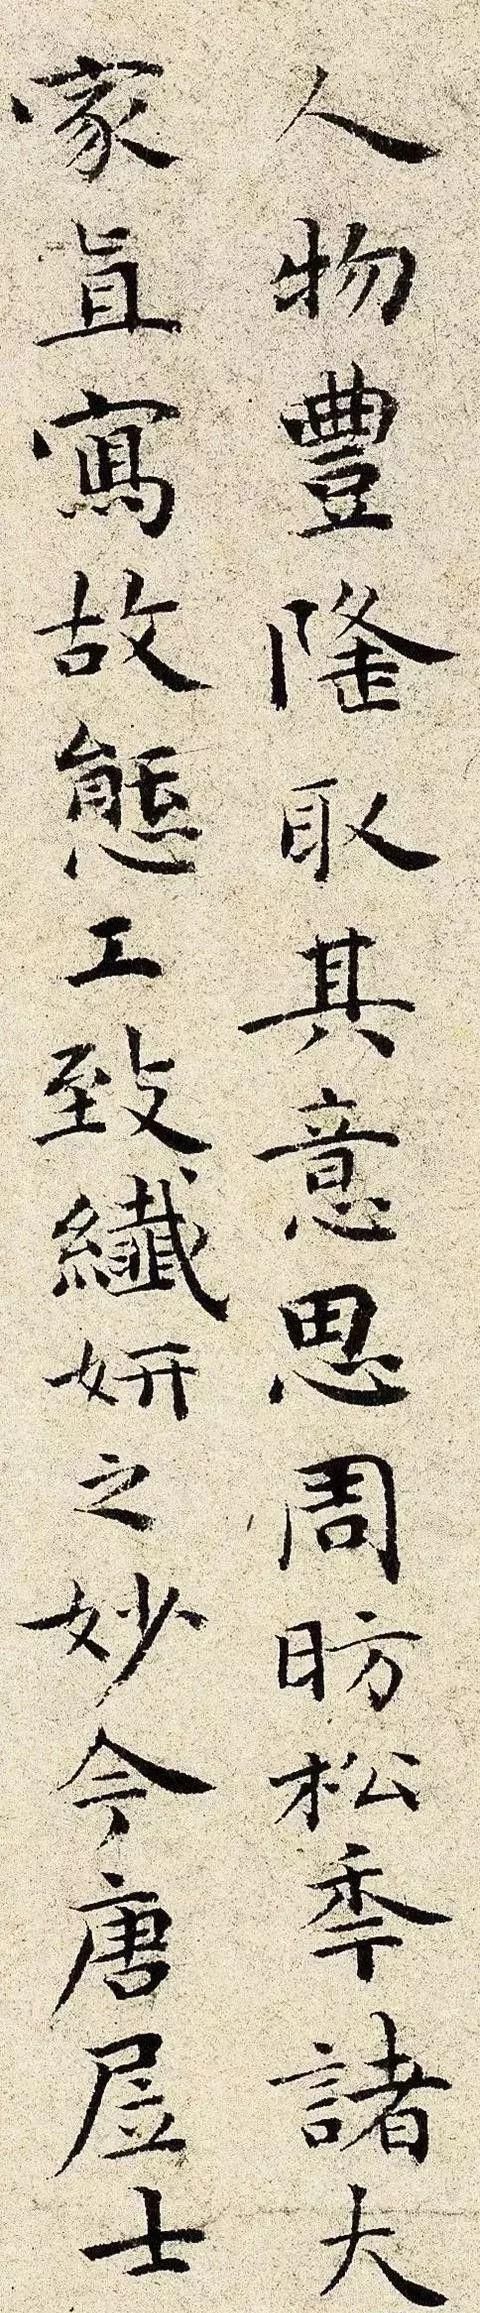 人物豐隆取其意思周昉松年諸大
家直寫故態工致纖妍之妙今唐居士